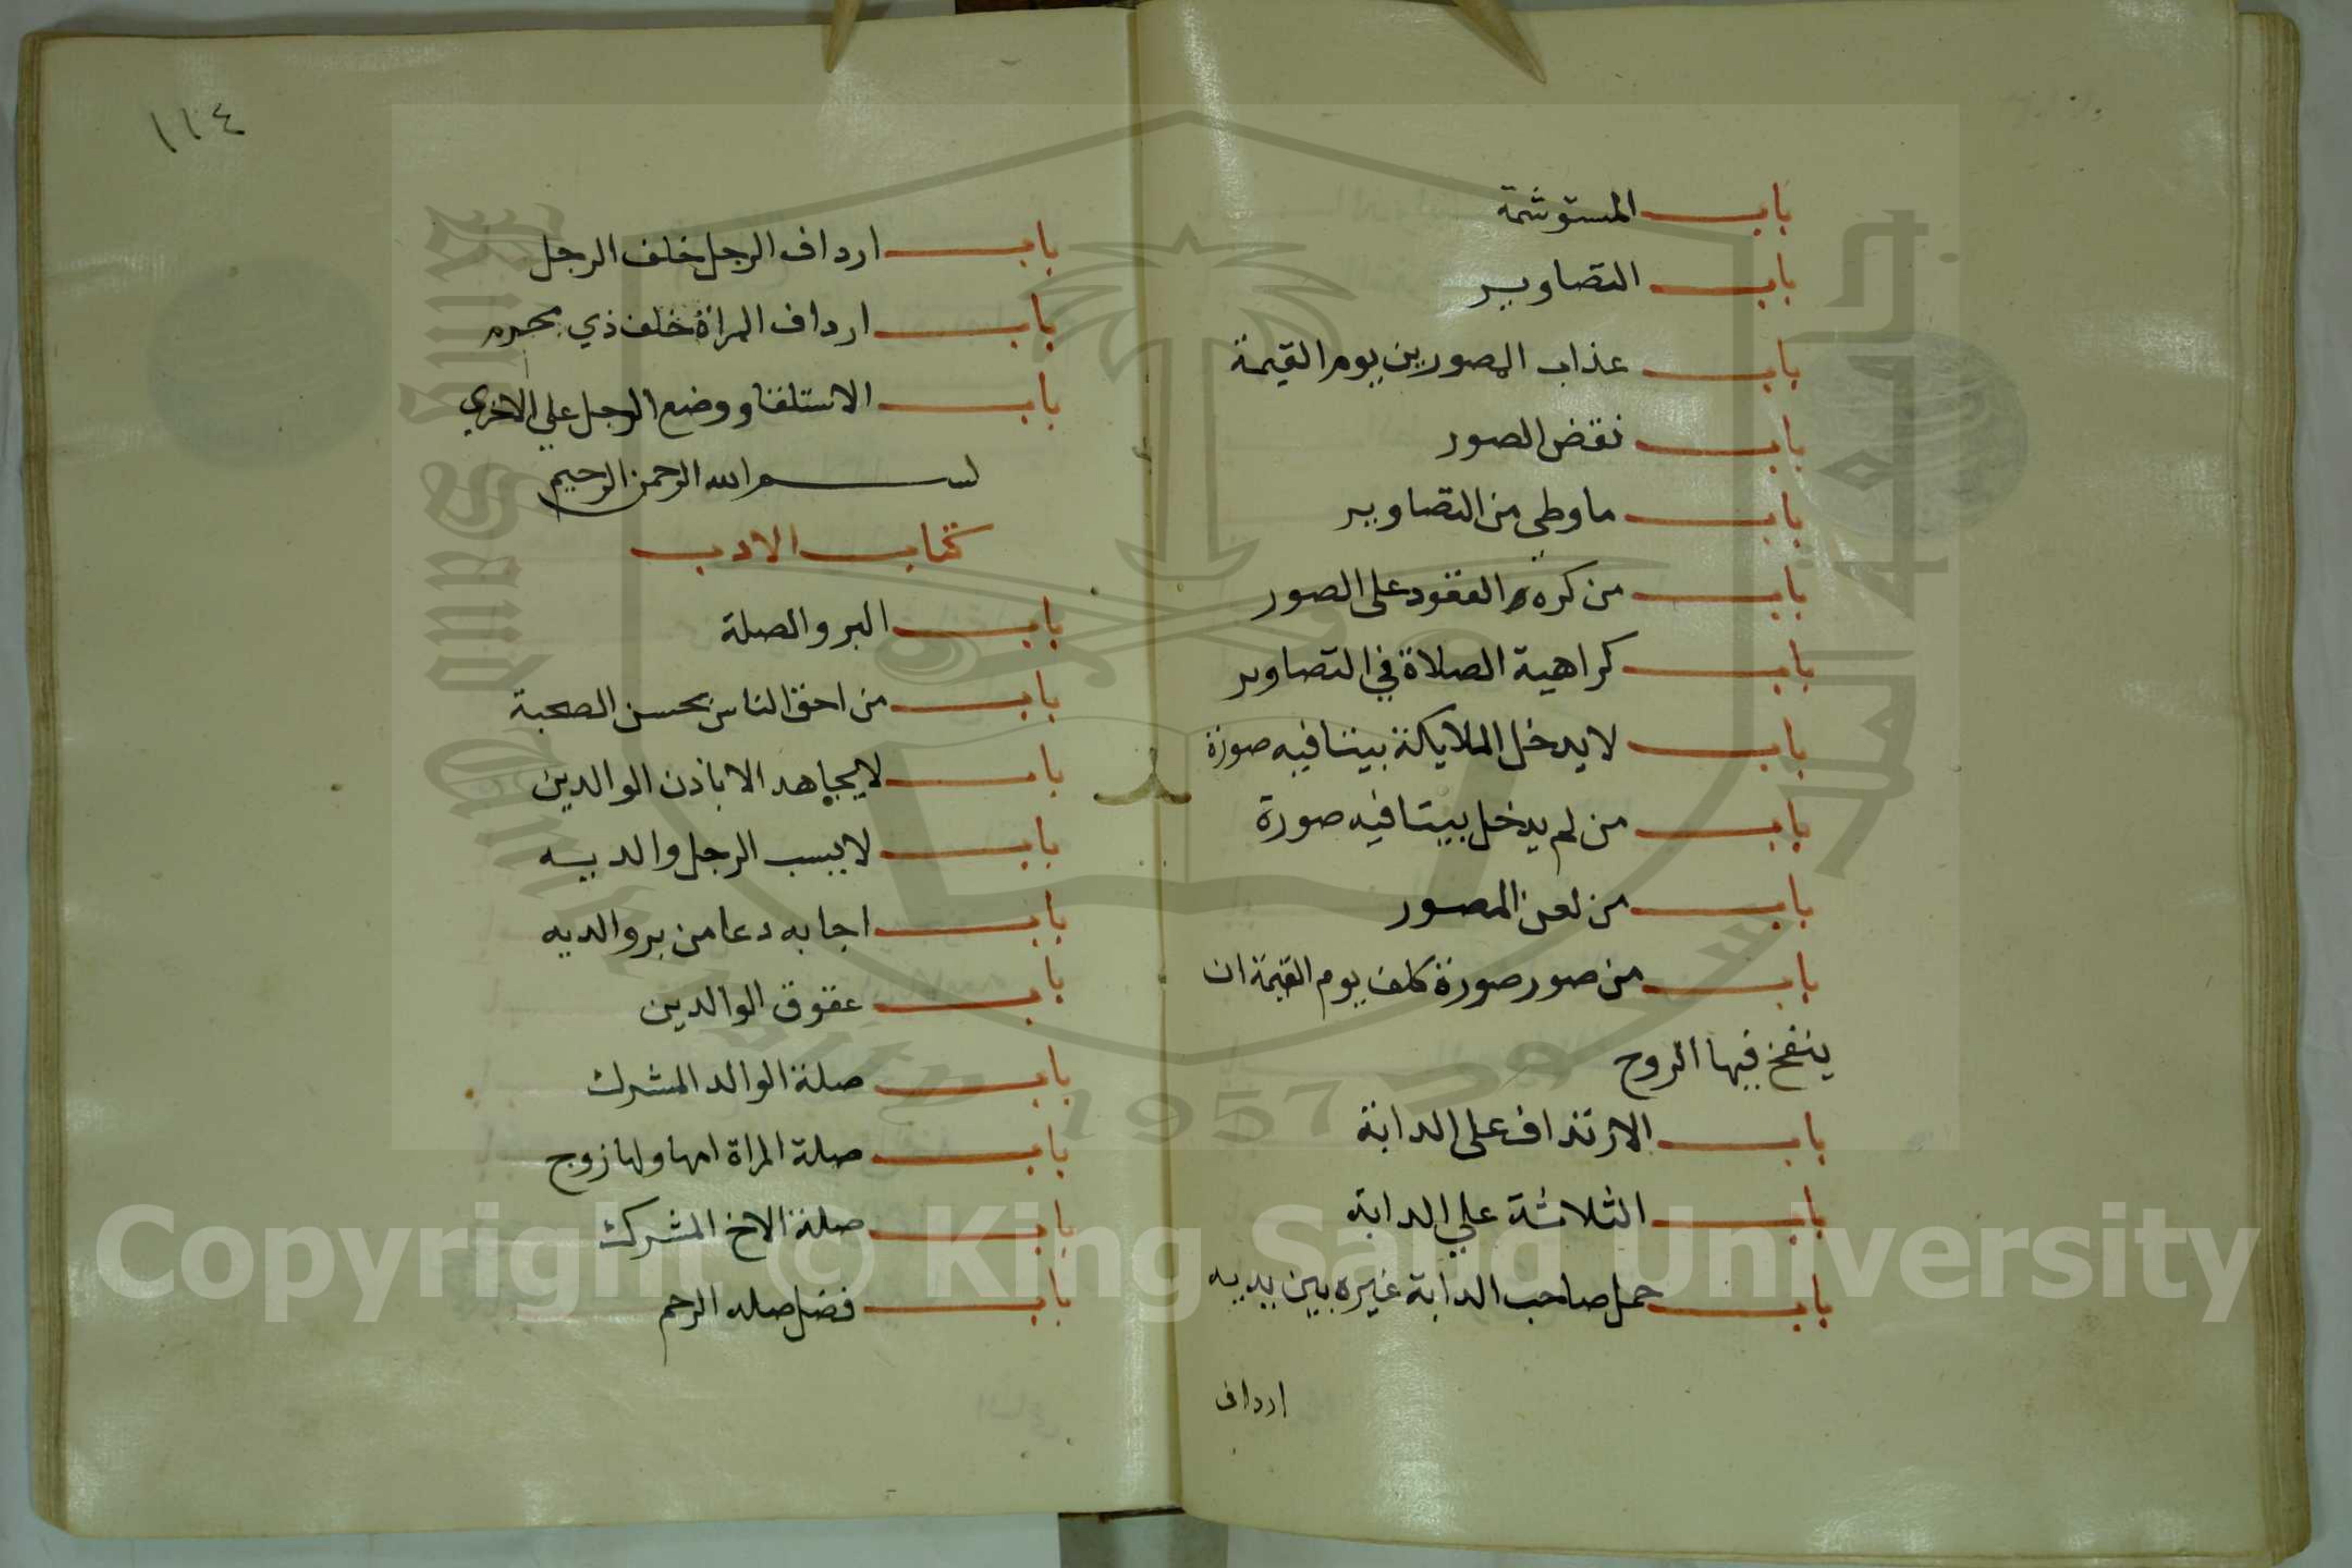 باب المستوشمة
باب التصاوير
باب عذاب المصورين يوم القيمة
باب نقض الصور
باب ما وطي من التصاوير
باب من كره القعود على الصور
باب كراهية الصلاة في التصاوير
باب لا يدخل الملايكة بيتا فيه صورة
باب من لم يدخل بيتا فيه صورة
باب من لعن المصور
باب من صور صورة كلف يوم القيمة ان
ينفخ فيها الروح
باب الارتداف على الدابة
باب الثلاثة علي الدابة
باب حمل صاحب الدابة غيره بين يديه
ارداف
١١٤
باب ارداف الرجل خلف الرجل
باب ارداف المراة خلف ذي محرم
باب الاستلقا ووضع الرجل علي الاخري
بسم الله الرحمن الرحيم
كتاب الادب
باب البر والصلة
باب من احق الناس بحسن الصحبة
باب لا يجاهد الا باذن الوالدين
باب لا يسب الرجل والديه
باب اجابه دعا من بر والديه
باب عقوق الوالدين
باب صلة الوالد المشرك
باب صلة المراة امها ولها زوج
باب صلة الاخ المشرك
باب فضل صله الرحم
King Saud University
1957
Copyright © King Saud University